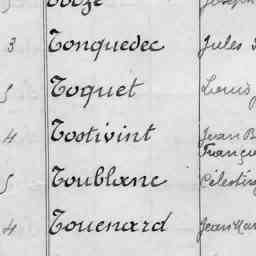 3 Tonquedec Jules
5 Toquet Louis
4 Tostivint Jean B
Françoi
5 Toublanc Célestin
4 Touenard Jean Mar